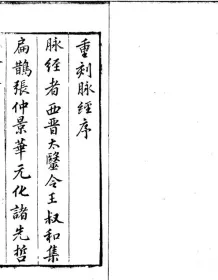 重刻脉經序
脉經者西晋太醫令王叔和集
扁鵲張仲景華元化諸先哲